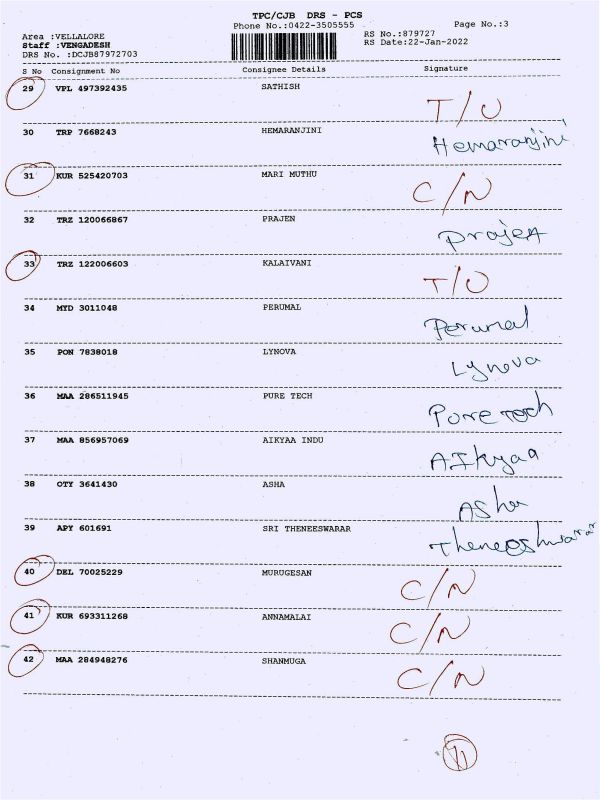 TPC/CJB DRS - PCS
Phone No.:0422-3505555 Page No.:3
Area :VELLALORE RS No.:879727
Staff :VENGADESH RS Date:22-Jan-2022
DRS No. :DCJB87972703
S No Consignment No Consignee Details Signature
29 VPL 497392435 SATHISH T/O
30 TRP 7668243 HEMARANJINI Hemaranjini
31 KUR 525420703 MARI MUTHU C/N
32 TRZ 120066867 PRAJEN Prajen
33 TRZ 122006603 KALAIVANI T/O
34 MYD 3011048 PERUMAL Perumal
35 PON 7838018 LYNOVA Lynova
36 MAA 286511945 PURE TECH Pure tech
37 MAA 856957069 AIKYAA INDU AIkyaa
38 OTY 3641430 ASHA Asha
39 APY 601691 SRI THENEESWARAR Theneeshwarar
40 DEL 70025229 MURUGESAN C/N
41 KUR 693311268 ANNAMALAI C/N
42 MAA 284948276 SHANMUGA C/N
11